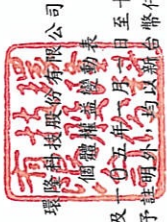 環隆科技股份有限公司
個體權益變動表
及一〇五年一月一日至十
予註明外，均以新台幣仟